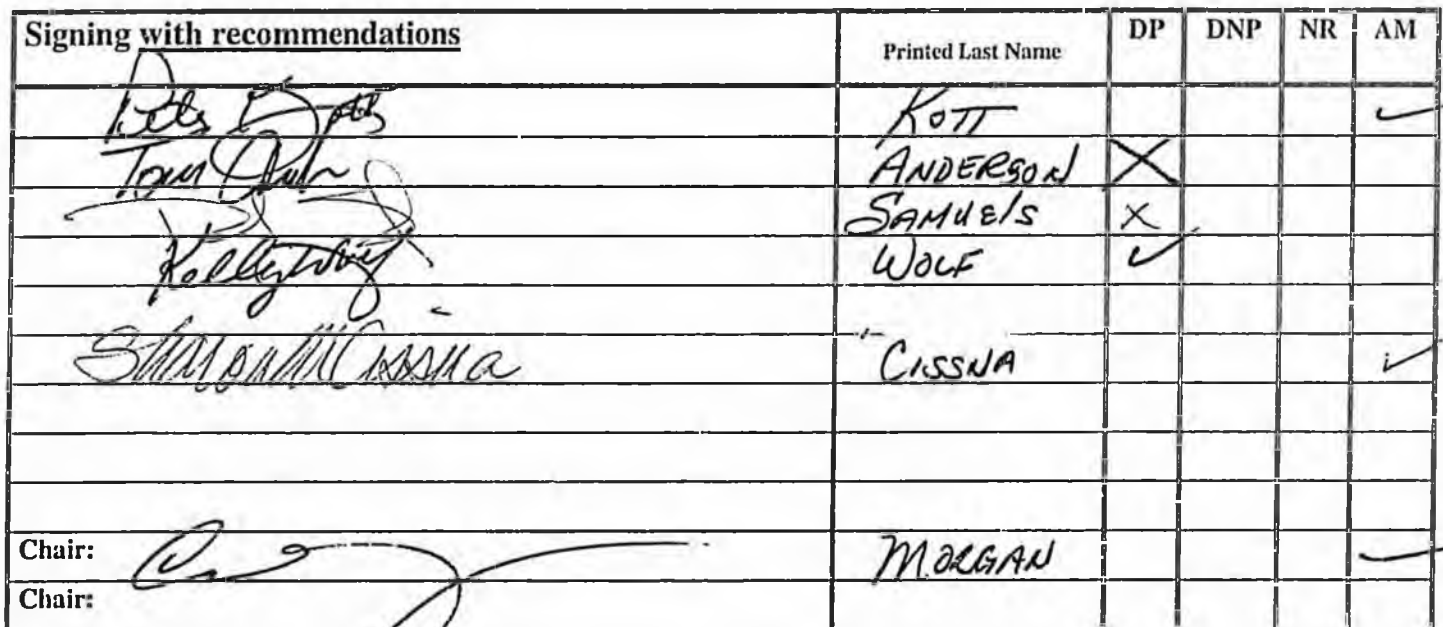 Signing with recommendations Printed Last Name DP DNP NR AM
Kott ✓
Tom ANDERSON X
SAMUElS X
Kelly Wolf WOLF ✓
Sharon M Cissna CISSNA ✓
Chair: MORGAN ✓
Chair: